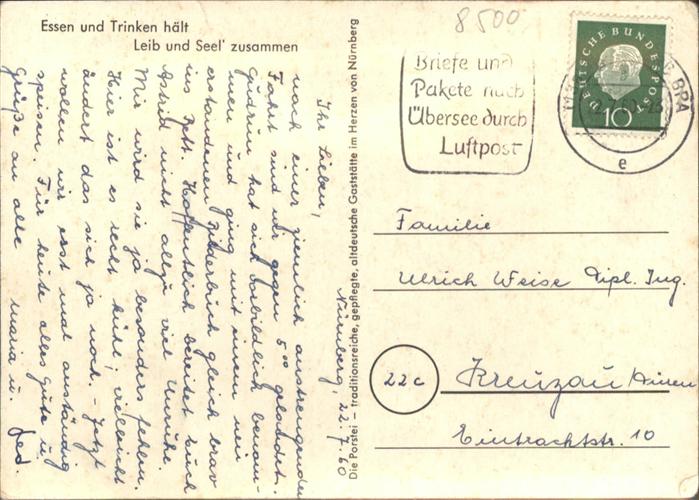 Essen und Trinken hält
Leib und Seel' zusammen
Nürnberg, 22.7.60
Ihr Lieben,
nach einer ziemlich anstrengenden
Fahrt sind wir gegen 5⁰⁰ gelandet.
Gudrun hat sich vorbildlich benom-
men und ging mit einem neu
erstandenen Bilderbuch gleich brav
ins Bett. Hoffentlich bereitet Euch
Astrid nicht allzu viel Unruhe.
Mir wird sie ja besonders fehlen.
Hier ist es recht kühl, vielleicht
ändert das sich ja noch. - Jetzt
wollen wir erst mal anständig
speisen. Für heute alles Gute u.
Grüße an alle Maria u.
Die Porstei — traditionsreiche, gepflegte, altdeutsche Gaststätte im Herzen von Nürnberg
8500
Briefe und
Pakete nach
Übersee durch
Luftpost
DEUTSCHE BUNDESPOST
10
e
Familie
Ulrich Weise Dipl. Ing.
22c
Kreuzau/Düren
Eintrachtstr. 10